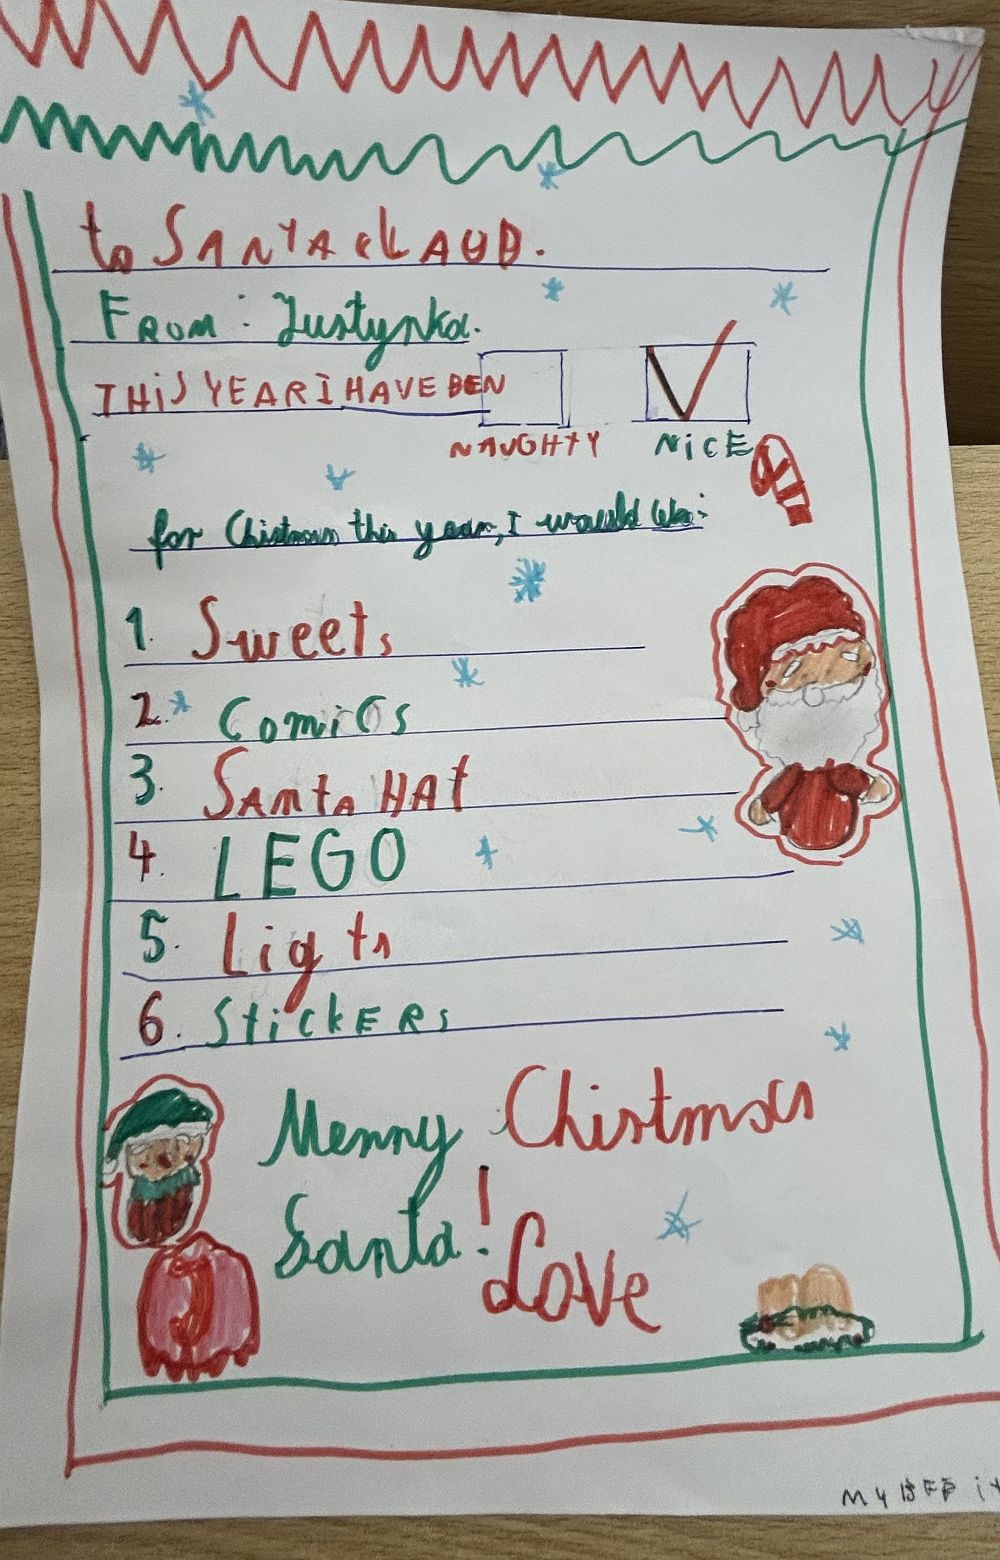 to SANTA CLAUD.
FROM: Justynka.
THIS YEAR I HAVE BEN
NAUGHTY NICE
for Chistmas this year, I would like:
1. Sweets
2. Comics
3. SANTA HAT
4. LEGO
5. Lights
6. StickERs
Merry Christmas
Santa! Love
MY BFF is